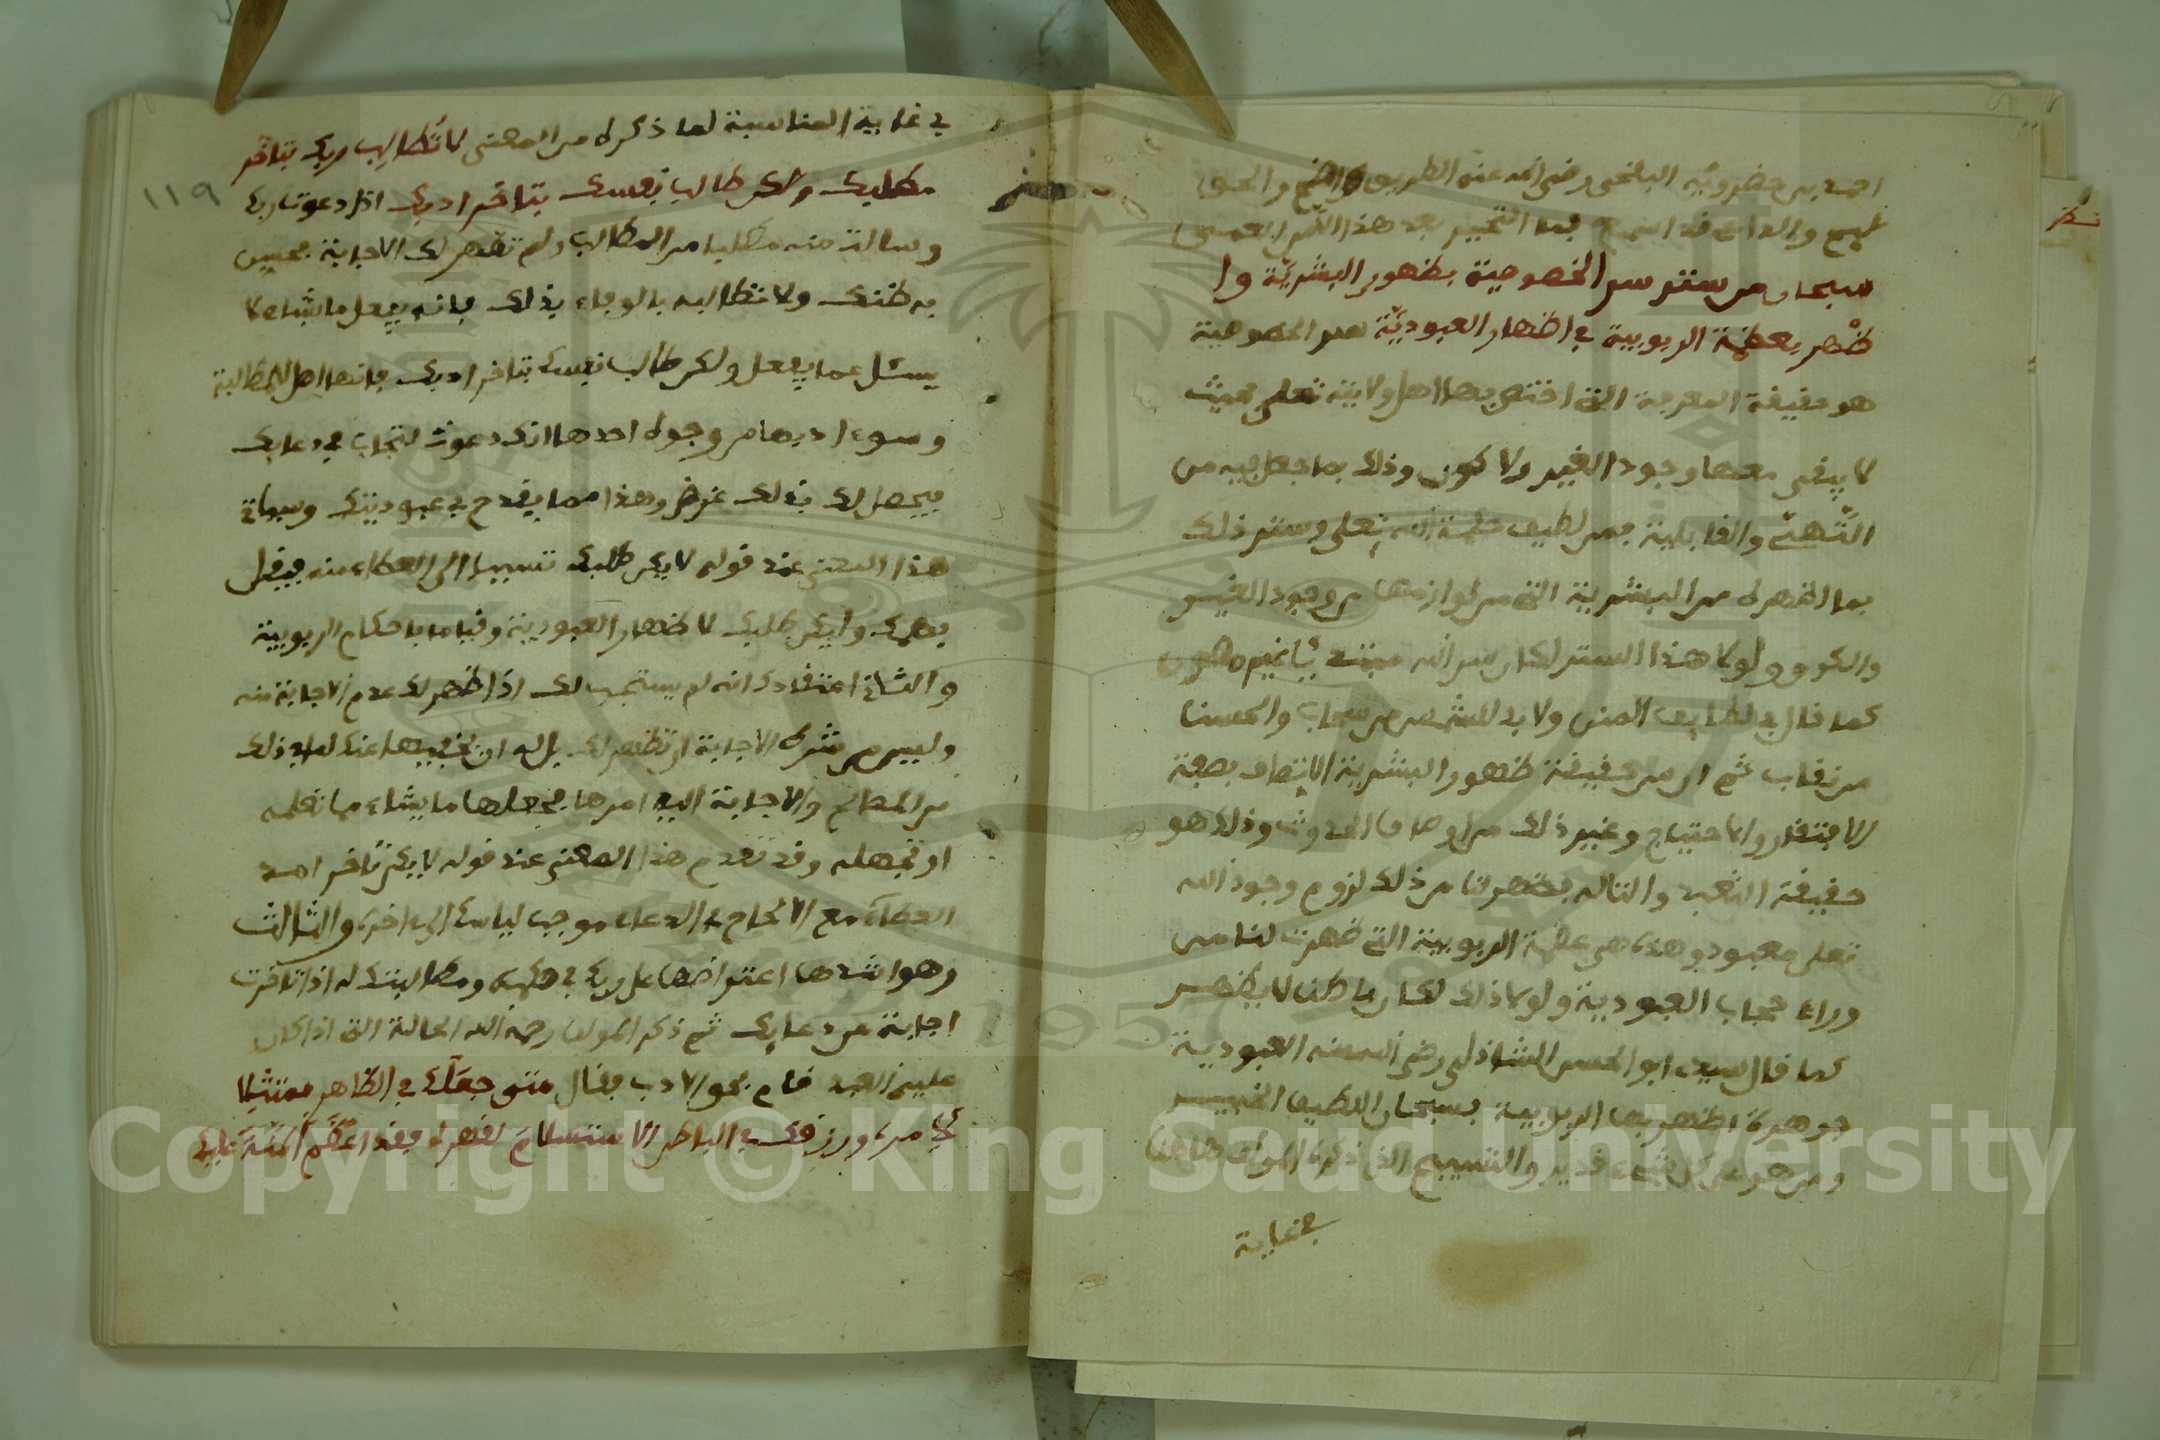 احمد بن خضرويه البلخي رضي الله عنه الطريق واضح والحق
والداعي قد اسمع فما التحير بعد هذا الا من العمى
سبحان من ستر سر الخصوصية بظهور البشرية وا
ظهر بعظمة الربوبية في اظهار العبودية سر الخصوصية
هو حقيقة المعرفة التي اختص بها اهل ولايته تعلى بحيث
لا يبقى معها وجود الغير ولا كون وذلك بما جعل فيه من
التهيّ والقابلية فمن لطيف حكمة الله تعلى وستر ذلك
بما اظهره من البشرية التي من لوازمها وجود الغير
والكون ولولا هذا الستر لكان سر الله
كما قال في لطايف المنن ولا بد للشمس من سحاب والحسنا
من نقاب ثم ان من حقيقة ظهور البشرية الاتصاف بصفة
الافتقار والاحتياج وغير ذلك من اوصاف الحدوث وذلك هو
حقيقة التعبد والتاله فظهر لنا من ذلك لزوم وجود الله
تعلى معبود وهذه هي عظمة الربوبية التي ظهرت لنا من
وراء حجاب العبودية ولولا ذلك لكان باطنا لا يظهر
كما قال سيدي ابو الحسن الشاذلي رضي الله عنه العبودية
جوهرة اظهر بها الربوبية فسبحان اللطيف الخبير
ومن هو على كل شيء قدير والتسبيح الذي ذكره المولف هاهنا
في غاية
١١٩
في غاية المناسبة لما ذكره من المعنى لا تطالب ربك بتاخر
مطلبك ولكن طالب نفسك بتاخر ادبك اذا دعوت ربك
وسالت منه مطلبا من المطالب ولم تظهر لك الاجابة فحسن
به ظنك ولا تطالبه بالوفاء بذلك فانه يفعل ما يشاء لا
يسئل عما يفعل ولكن طالب نفسك بتاخر ادبك فانها اهل للمطالبة
وسوء ادبها من وجوه احدها انك دعوت لتجاب في دعايك
فيحصل لك بذلك غرض وهذا مما يقدح في عبوديتك وسياتي
هذا المعنى عند قوله لا يكن طلبك تسببا الى العطاء منه فيقل
فهمك وليكن طلبك لاظهار العبودية وقياما باحكام الربوبية
والثاني اعتقادك انه لم يستجب لك اذا ظهر لك عدم الاجابة منه
وليس من شرط الاجابة ان تظهر لك بل له ان يخفيها عنك لما في ذلك
من المصالح والاجابة اليه امرها فيجعلها ما يشاء مما تعلمه
او تجهله وقد تقدم هذا المعنى عند قوله لا يكن تاخر امد
العطاء مع الالحاح في الدعاء موجب لياسك الى اخره والثالث
وهو اشدها اعتراضها على ربك في حكمه ومطالبتك له اذا تاخرت
اجابة عن دعايك ثم ذكر المولف رحمه الله الحالة التي اذا كان
عليها العبد قام بحق الادب فقال متى جعلك في الظاهر ممتثلا
لامره ورزقك في الباطن الاستسلام لقهره فقد اعظم المنة عليك
Copyright © King Saud University
1957